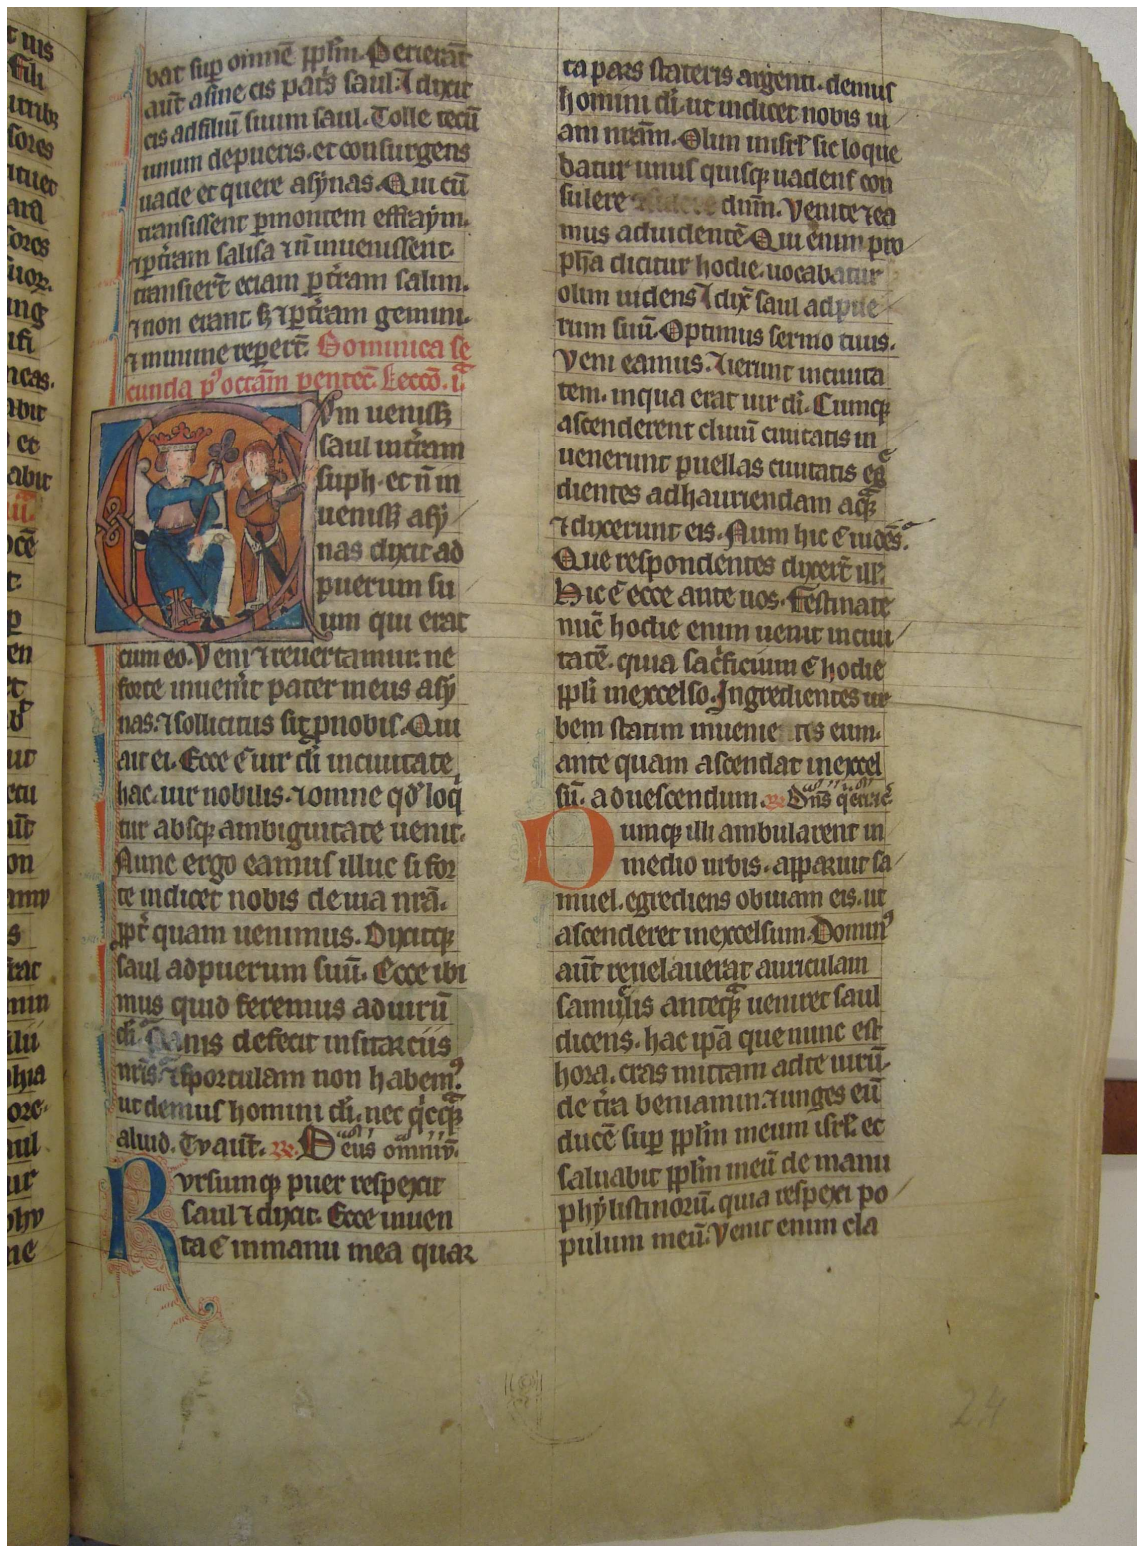 bat sup̱ omnē ꝓpl̄m. Perierāt
aūt asine cis patͥs saul. ⁊ dixit
cis ad filiū suum saul. Tolle tecū
unum de pueris. et consurgens
uade et quere asẏnas. Qui cū
transissent p̱ montem effraẏm.
⁊ p̱ t̄ram salisa ⁊ n̄ inuenissent.
transier̄t eciam p̱ t̄ram salim.
⁊ non erant sꝫ ⁊ p̱ t̄ram gemini.
⁊ minime rep̱er̄t. Dominica se
cunda pꝰ octāͣm pentec̄. Lecc̄o. i.ͣ
Cvm uenissꝫ
saul in t̄ram
suph. et n̄ in
uenissꝫ asẏ
nas dixit ad
puerum su
um qui erat
cum eo. Veni ⁊ reuertamur. ne
forte inuen̄it pater meus asẏ
nas. ⁊ sollicitus sit p̱ nobis. Qui
ait ei. Ecce ē uir dī in ciuitate
hac. uir nobilis. ⁊ omne qd̄ loqͥ
tur absqꝫ ambiguitate uenit.
Nunc ergo eamus illuc si for
te indicet nobis de uia nr̄a.
ꝓpt̄ quam uenimus. Dixitqꝫ
saul ad puerum suū. Ecce ibi
mus quid feremus ad uirū
dī. panis defecit in sitarciis
nr̄is. ⁊ sportulam non habemꝰ.
ut demus homini dī. nec qͥcqͣꝫ
aliud. Tv aūt. ℞. Deus omniū.
Rvrsum qꝫ puer respexit
saul ⁊ dixit. Ecce inuen
ta ē in manu mea quar
ta pars stateris argenti. demus
homini dī. ut indicet nobis ui
am nr̄am. Olim in isrl̄ sic loque
batur unus quisqꝫ uadens con
sulere dūm. Venite ⁊ ea
mus ad uidentē. Qui enim pro
ph̄a dicitur hodie. uocabatur
olim uidens. ⁊ dix̄ saul ad pue
rum suū. Optimus sermo tuus.
Veni eamus. ⁊ ierunt in ciuita
tem. in qua erat uir dī. Cumqꝫ
ascenderent cliuū ciuitatis in
uenerunt puellas ciuitatis egͤ
dientes ad hauriendam aqͣꝫ
⁊ dixerunt eis. Num hic ē uidēs.
Que respondentes dixer̄t ill̄.
Hic ē ecce ante uos. festinate
nūc hodie enim uenit in ciui
tatē. quia sac̄ficium ē hodie
ꝓpl̄i in excelso. Ingredientes ur
bem statim inuenie tes eum.
ante quam ascendat in excel
sū. ad uescendum. ℞. Dn̄s
Dumqꝫ illi ambularent in
medio urbis. apparuit sa
muel. egrediens obuiam eis. ut
ascenderet in excelsum. Dominꝰ
aūt reuelauerat auriculam
samuͤlis anteqͣꝫ ueniret saul
dicens. hac ip̄a que nunc est
hora. cras mittam ad te uirū.
de t̄ra beniamin. ⁊ unges eū
ducē sup̱ ꝓpl̄m meum isrl̄. et
saluabit ꝓpl̄m meū de manu
phẏlistinorū. quia respexi po
pulum meū. Venit enim cla
24